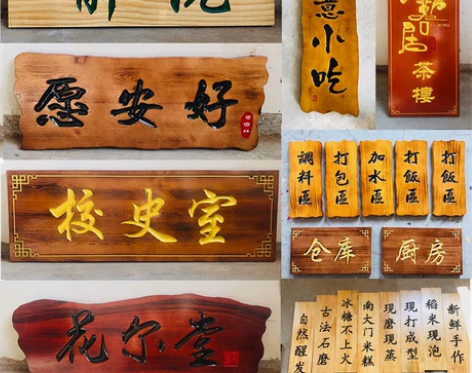 愿安好
校史室
花尔堂
意小吃
居茶樓
調料區
打包區
加水區
打飯區
打飯區
仓库
厨房
自然醒发
古法石磨
冰糖不上火
南大门米糕
现磨现蒸
现打成型
稻米现泡
新鲜手作